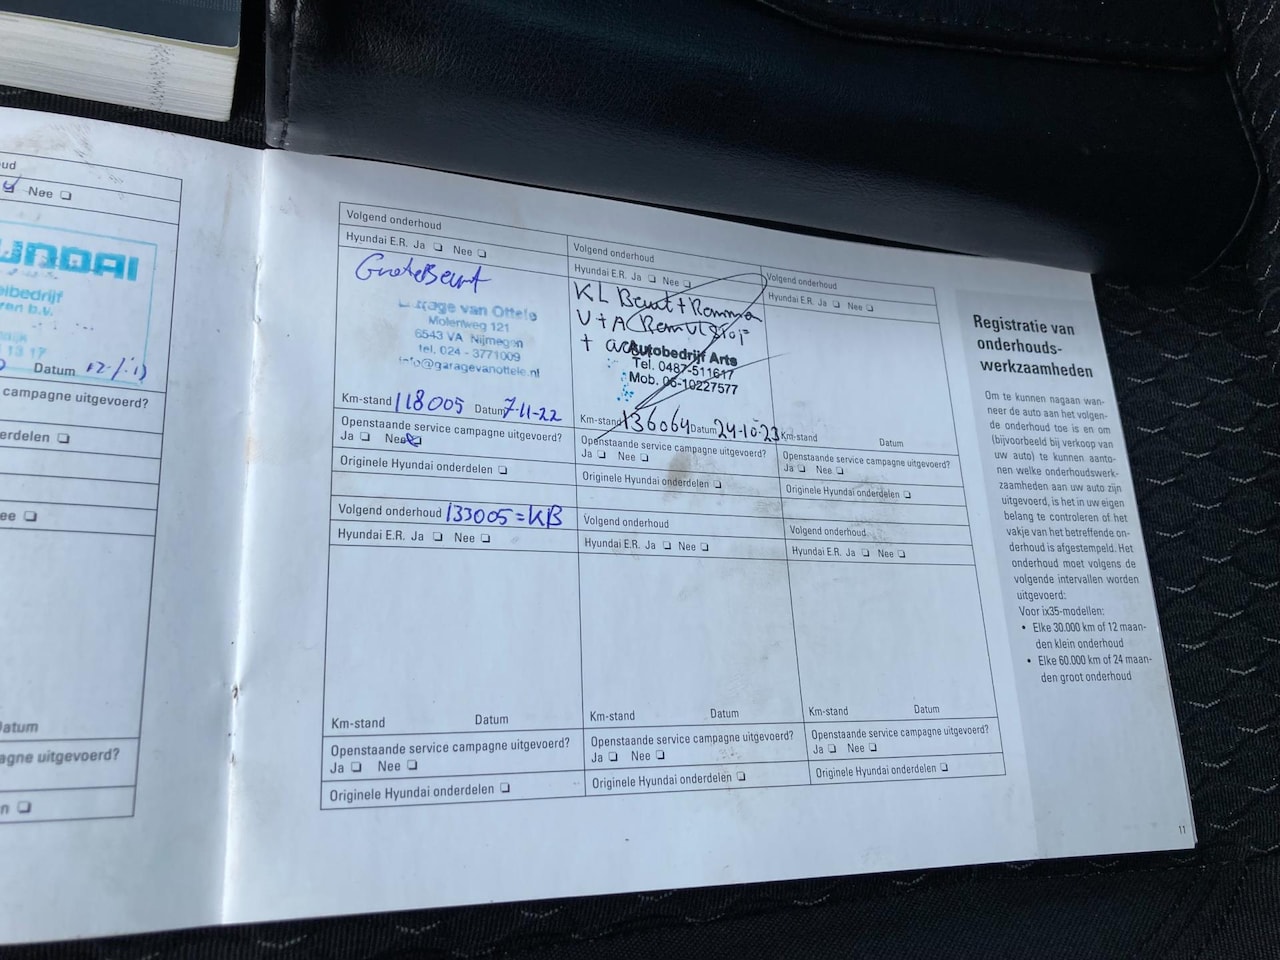 Nee ❏
Datum 12-1-13
campagne uitgevoerd?
derdelen ❏
ee ❏
Datum
agne uitgevoerd?
n ❏
Volgend onderhoud
Hyundai E.R. Ja ❏ Nee ❏
Grote Beurt
Garage van Ottele
Molenweg 121
6543 VA Nijmegen
tel. 024 - 3771009
info@garagevanottele.nl
Km-stand 118005 Datum 7-11-22
Openstaande service campagne uitgevoerd?
Ja ❏ Nee ❏
Originele Hyundai onderdelen ❏
Volgend onderhoud 133005=KB
Hyundai E.R. Ja ❏ Nee ❏
Km-stand Datum
Openstaande service campagne uitgevoerd?
Ja ❏ Nee ❏
Originele Hyundai onderdelen ❏
Volgend onderhoud
Hyundai E.R. Ja ❏ Nee ❏
KL Beurt + Remmen
V+A Remvloeist
+ accu
Autobedrijf Arts
Tel. 0487-511617
Mob. 06-10227577
Km-stand 136064 Datum 24-10-23
Openstaande service campagne uitgevoerd?
Ja ❏ Nee ❏
Originele Hyundai onderdelen ❏
Volgend onderhoud
Hyundai E.R. Ja ❏ Nee ❏
Km-stand Datum
Openstaande service campagne uitgevoerd?
Ja ❏ Nee ❏
Originele Hyundai onderdelen ❏
Volgend onderhoud
Hyundai E.R. Ja ❏ Nee ❏
Km-stand Datum
Openstaande service campagne uitgevoerd?
Ja ❏ Nee ❏
Originele Hyundai onderdelen ❏
Volgend onderhoud
Hyundai E.R. Ja ❏ Nee ❏
Km-stand Datum
Openstaande service campagne uitgevoerd?
Ja ❏ Nee ❏
Originele Hyundai onderdelen ❏
Registratie van
onderhouds-
werkzaamheden
Om te kunnen nagaan wan-
neer de auto aan het volgen-
de onderhoud toe is en om
(bijvoorbeeld bij verkoop van
uw auto) te kunnen aanto-
nen welke onderhoudswerk-
zaamheden aan uw auto zijn
uitgevoerd, is het in uw eigen
belang te controleren of het
vakje van het betreffende on-
derhoud is afgestempeld. Het
onderhoud moet volgens de
volgende intervallen worden
uitgevoerd:
Voor ix35-modellen:
• Elke 30.000 km of 12 maan-
den klein onderhoud
• Elke 60.000 km of 24 maan-
den groot onderhoud
11